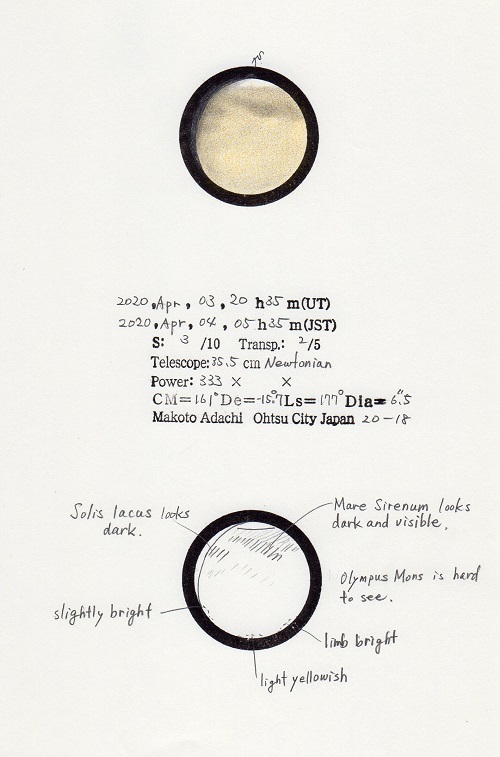 S
2020, Apr, 03, 20 h 35 m (UT)
2020, Apr, 04, 05 h 35 m (JST)
S: 3 /10 Transp.: 2/5
Telescope: 35.5 cm Newtonian
Power: 333 × ×
CM=161° De=-15.°7 Ls=177° Dia=6.″5
Makoto Adachi Ohtsu City Japan 20-18
Solis lacus looks
dark.
Mare Sirenum looks
dark and visible.
Olympus Mons is hard
to see.
slightly bright
limb bright
light yellowish